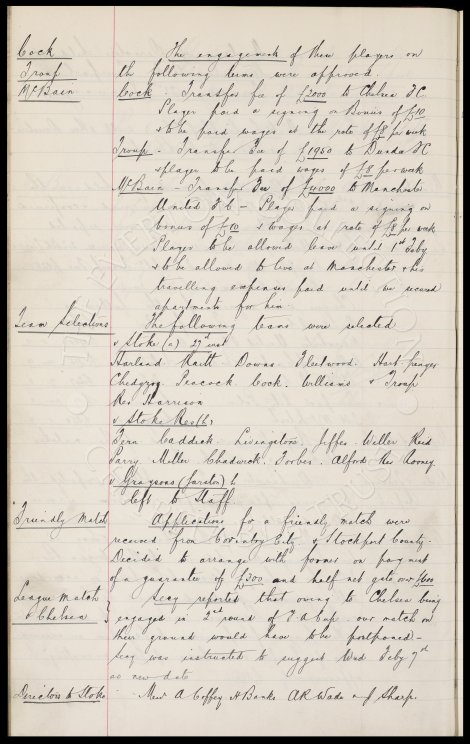 Cock
Troup
McBain
The engagement of these players on
the following terms were approved.
Cock - Transfer fee of £2000 to Chelsea FC
Player paid a signing on Bonus of £10
& to be paid wages at the rate of £8 per week
Troup - Transfer Fee of £1950 to Dundee FC
& player to be paid wages of £8 per week
McBain - Transfer Fee of £4000 to Manchester
United F.C - Player paid a signing on
bonus of £10 & wages at rate of £8 per week
Player to be allowed leave until 1st Feby
& to be allowed to live at Manchester & his
travelling expenses paid until we secured
apartments for him.
Team Selections
The following teams were selected
v Stoke (a) 27th inst
Harland Raitt Downs Fleetwood Hart Grenyer
Chedgzoy Peacock Cock Williams & Troup
Res Harrison
v Stoke Res (h)
Fern Caddick Livingstone Jeffes Weller Reid
Parry Miller Chadwick Forbes Alford Res Rooney
v Graysons (Garston)
left to Staff
Friendly Match
Applications for a friendly match were
received from Coventry City & Stockport County.
Decided to arrange with former on payment
of a guarantee of £300 and half net gate over £600
League Match
v Chelsea
Secy reported that owing to Chelsea being
engaged in 2nd round of F.A Cup our match on
their ground would have to be postponed -
Secy was instructed to suggest Wed Feby 7th
as new date
Directors to Stoke
Messrs A Coffey H Banks A R Wade & J Sharp.